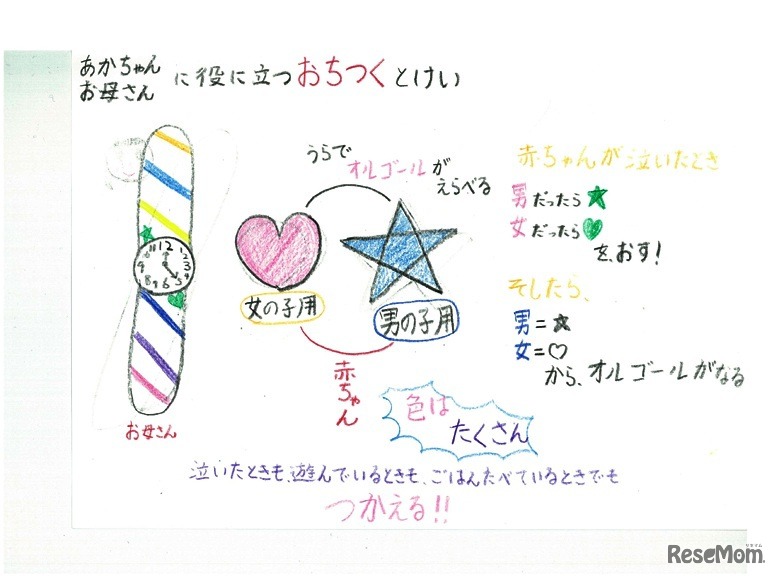 あかちゃん
お母さん
に役に立つおちつくとけい
うらで
オルゴールが
えらべる
女の子用
男の子用
赤ちゃん
お母さん
12
1
2
3
4
5
6
7
8
9
10
11
赤ちゃんが泣いたとき
男だったら★
女だったら♥
を、おす!
そしたら、
男=★
女=♡
から、オルゴールがなる
色は
たくさん
泣いたときも、遊んでいるときも、ごはんたべているときでも
つかえる!!
リセマム
ReseMom.